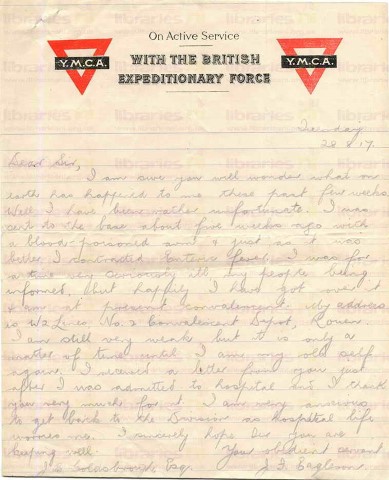 On Active Service
WITH THE BRITISH
EXPEDITIONARY FORCE
Y.M.C.A.
Y.M.C.A.
Tuesday
28 8 17.
Dear Sir,
I am sure you will wonder what on
earth has happened to me these past few weeks
Well I have been rather unfortunate. I was
sent to the base about five weeks ago with
a blood-poisoned arm & just as it was
better I contracted Enteric fever. I was for
a time very seriously ill, my people being
informed, but happily I have got over it
& am at present convalescent. My address
is W2 Lines, No. 2 Convalescent Depot, Rouen.
I am still very weak but it is only a
matter of time until I am my old self
again. I received a letter from you just
after I was admitted to hospital and I thank
you very much for it. I am very anxious
to get back to the Division as hospital life
worries me. I sincerely hope Sir you are
keeping well.
Your obedient servant
J. E. Goldsbrough Esq. J. G. Eagleson